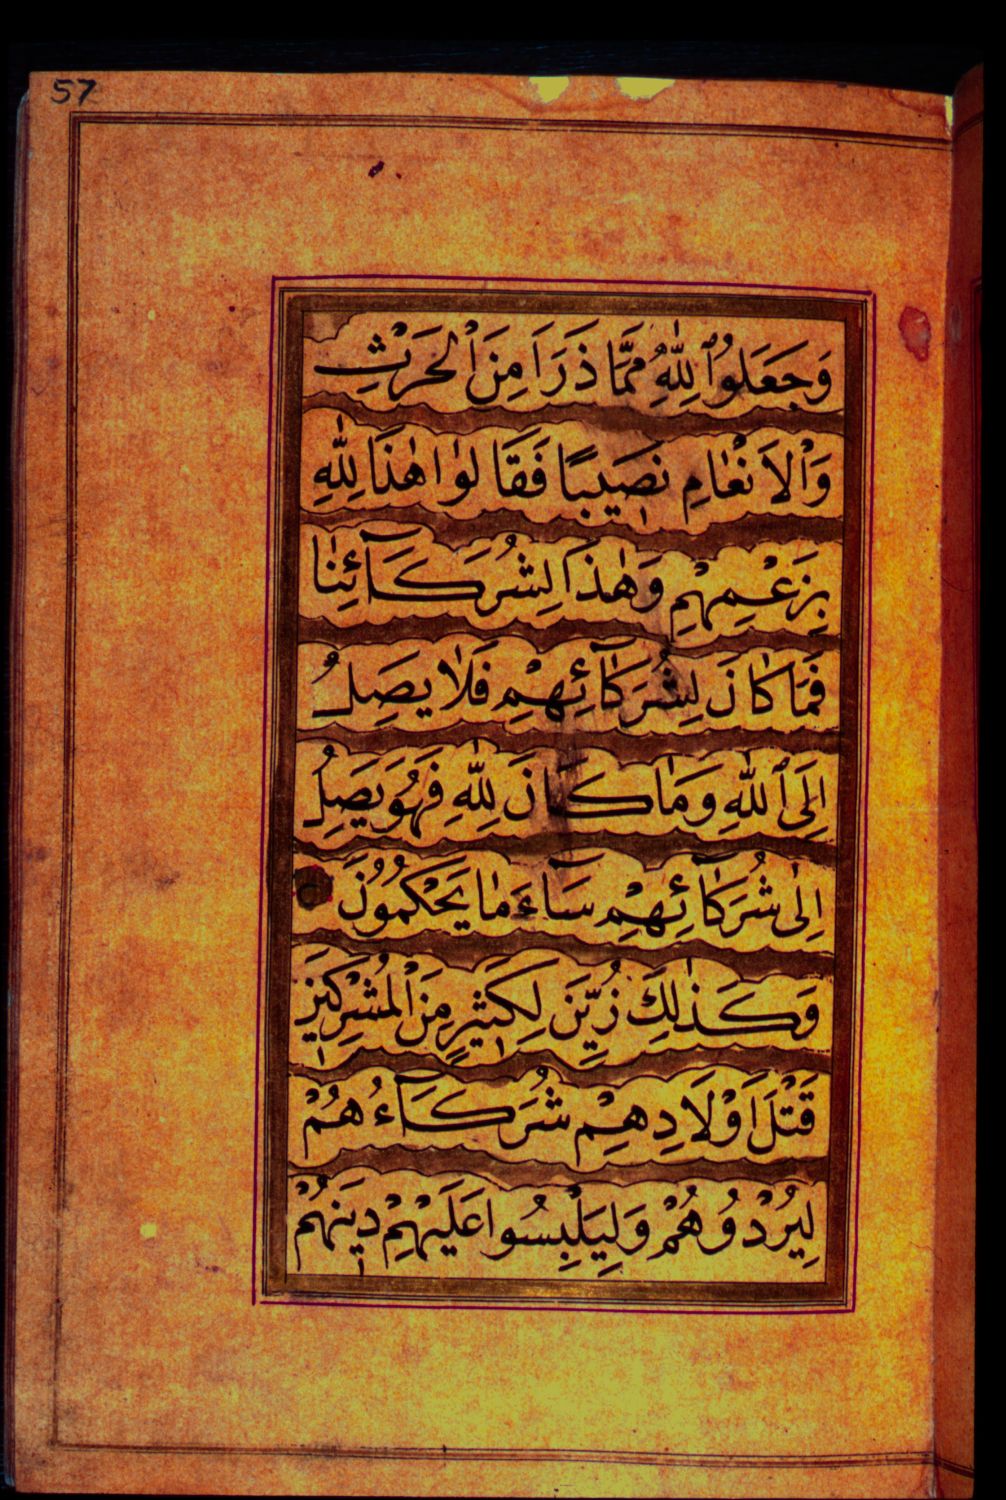 57
وَجَعَلُوا۟ لِلّٰهِ مِمَّا ذَرَاَ مِنَ الْحَرْثِ
وَالْاَنْعَامِ نَصِيبًا فَقَالُوا هٰذَا لِلّٰهِ
بِزَعْمِهِمْ وَهٰذَا لِشُرَكَآئِنَا
فَمَا كَانَ لِشُرَكَآئِهِمْ فَلَا يَصِلُ
اِلَى اللّٰهِ وَمَا كَانَ لِلّٰهِ فَهُوَ يَصِلُ
اِلٰى شُرَكَآئِهِمْ سَآءَ مَا يَحْكُمُونَ
وَكَذٰلِكَ زَيَّنَ لِكَثِيرٍ مِنَ الْمُشْرِكِينَ
قَتْلَ اَوْلَادِهِمْ شُرَكَآءُ هُمْ
لِيُرْدُوهُمْ وَلِيَلْبِسُوا عَلَيْهِمْ دِينَهُمْ